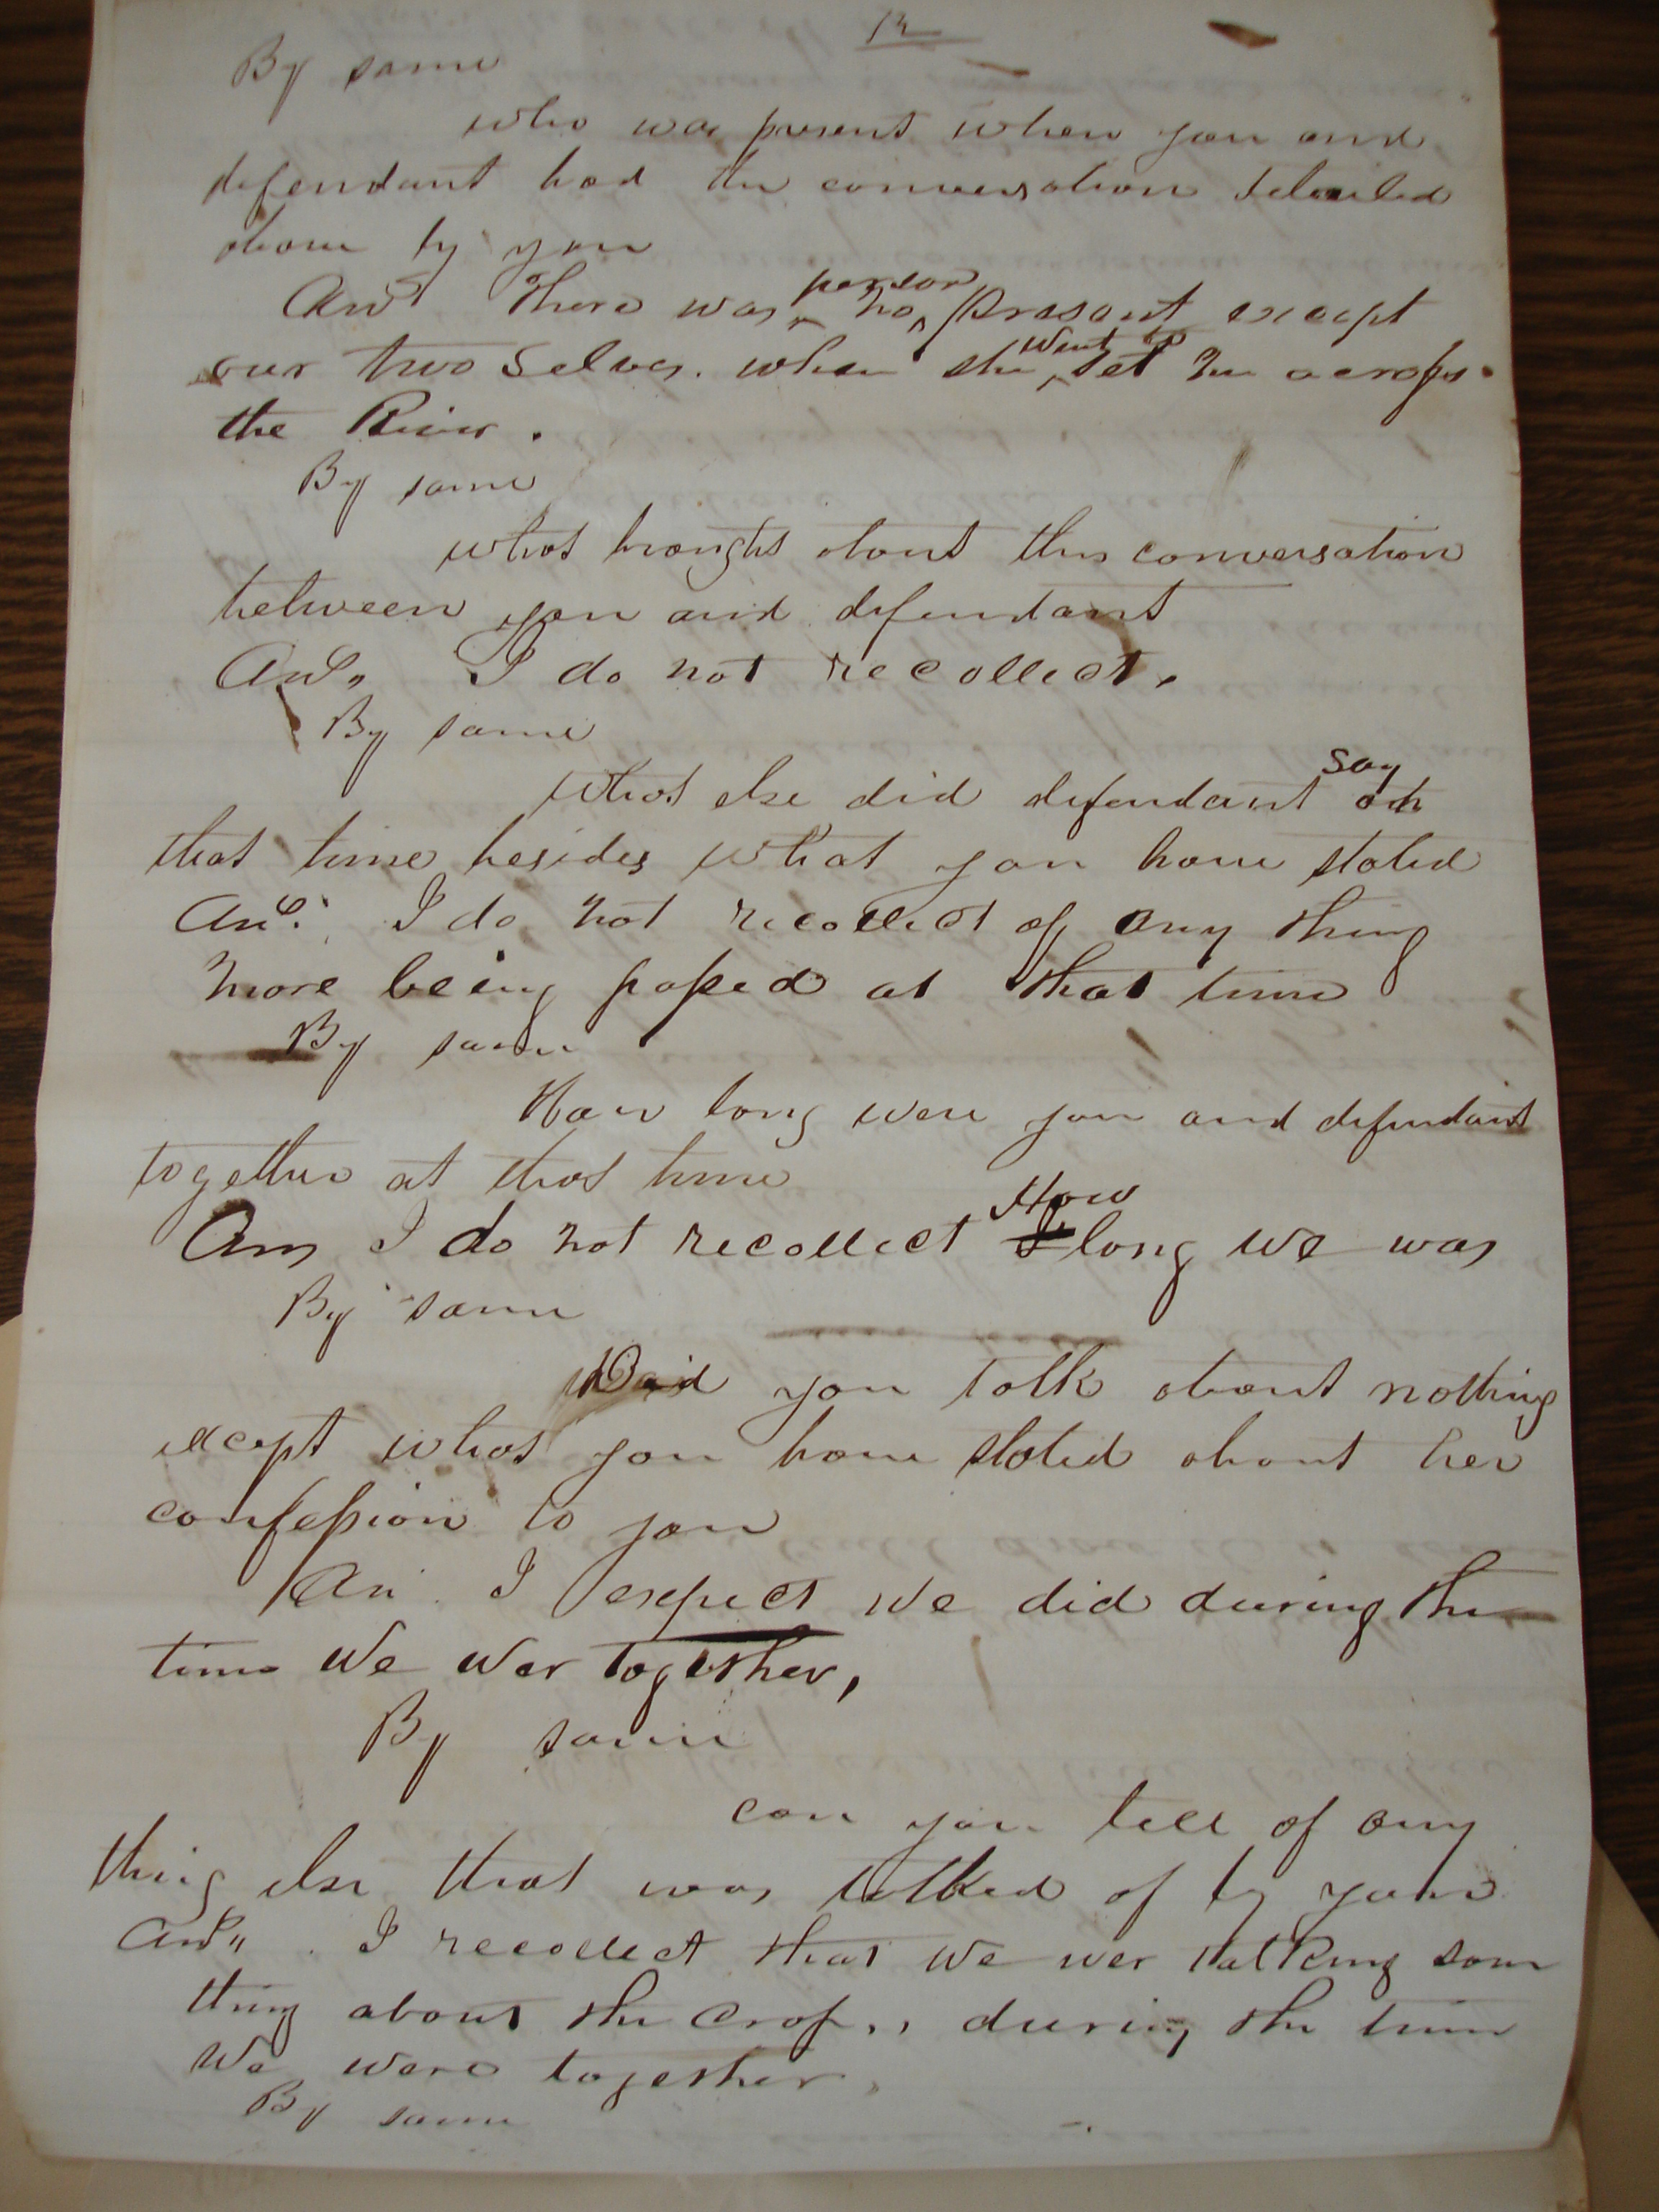 12
By same
who was present when you and
defendant had the conversation detailed
above by you
Ans There was no person present except
our two selves. when she went to set me across
the River.
By same
what brought about this conversation
between you and defendant
Ans, I do not recollect.
By same
What else did defendant say at
that time besides what you have stated
Ans. I do not recollect of any thing
more being passed at that time
By same
How long were you and defendant
together at that time
Ans I do not recollect How long we was
By same
Did you talk about nothing
except what you have stated about her
confession to you
An. I expect we did during the
time we wer together,
By same
can you tell of any
thing else that was talked of by you
Ans,, I recollect that we wer talking som
thing about the crop,, during the time
we were together.
By same